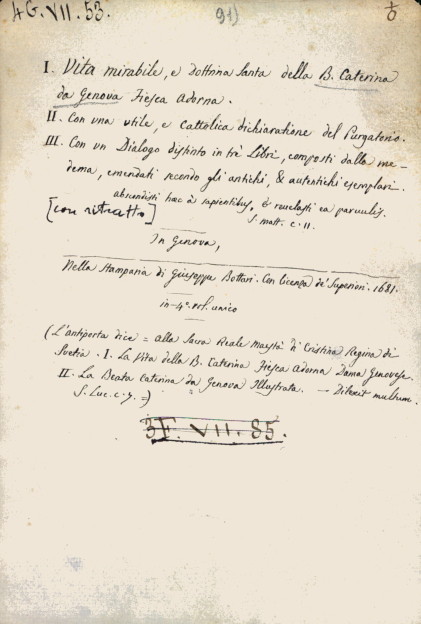 4G. VII. 53.
91)
I. Vita mirabile, e Dottrina Santa della B. Caterina
da Genova Fiesca Adorna.
II. Con una utile, e Cattolica dichiaratione del Purgatorio.
III. Con un Dialogo distinto in trè Libri, composti dalla me-
dema, emendati secondo gli antichi, & autentichi esemplari.
abscondisti haec à sapientibus, & revelasti ea parvulis.
S. matt. c. 11.
[con ritratto]
In Genova,
Nella Stamparia di Giuseppe Bottari. Con licenza de' Superiori. 1681.
in-4° vol. unico
(L'antiporta dice = alla Sacra Reale Maestà di Cristina Regina di
Svetia. I. La Vita della B. Caterina Fiesca Adorna Dama Genovese.
II. La Beata Caterina da Genova Illustrata. — Dilexit multum.
S. Luc. c. 7. =)
3F. VII. 85.